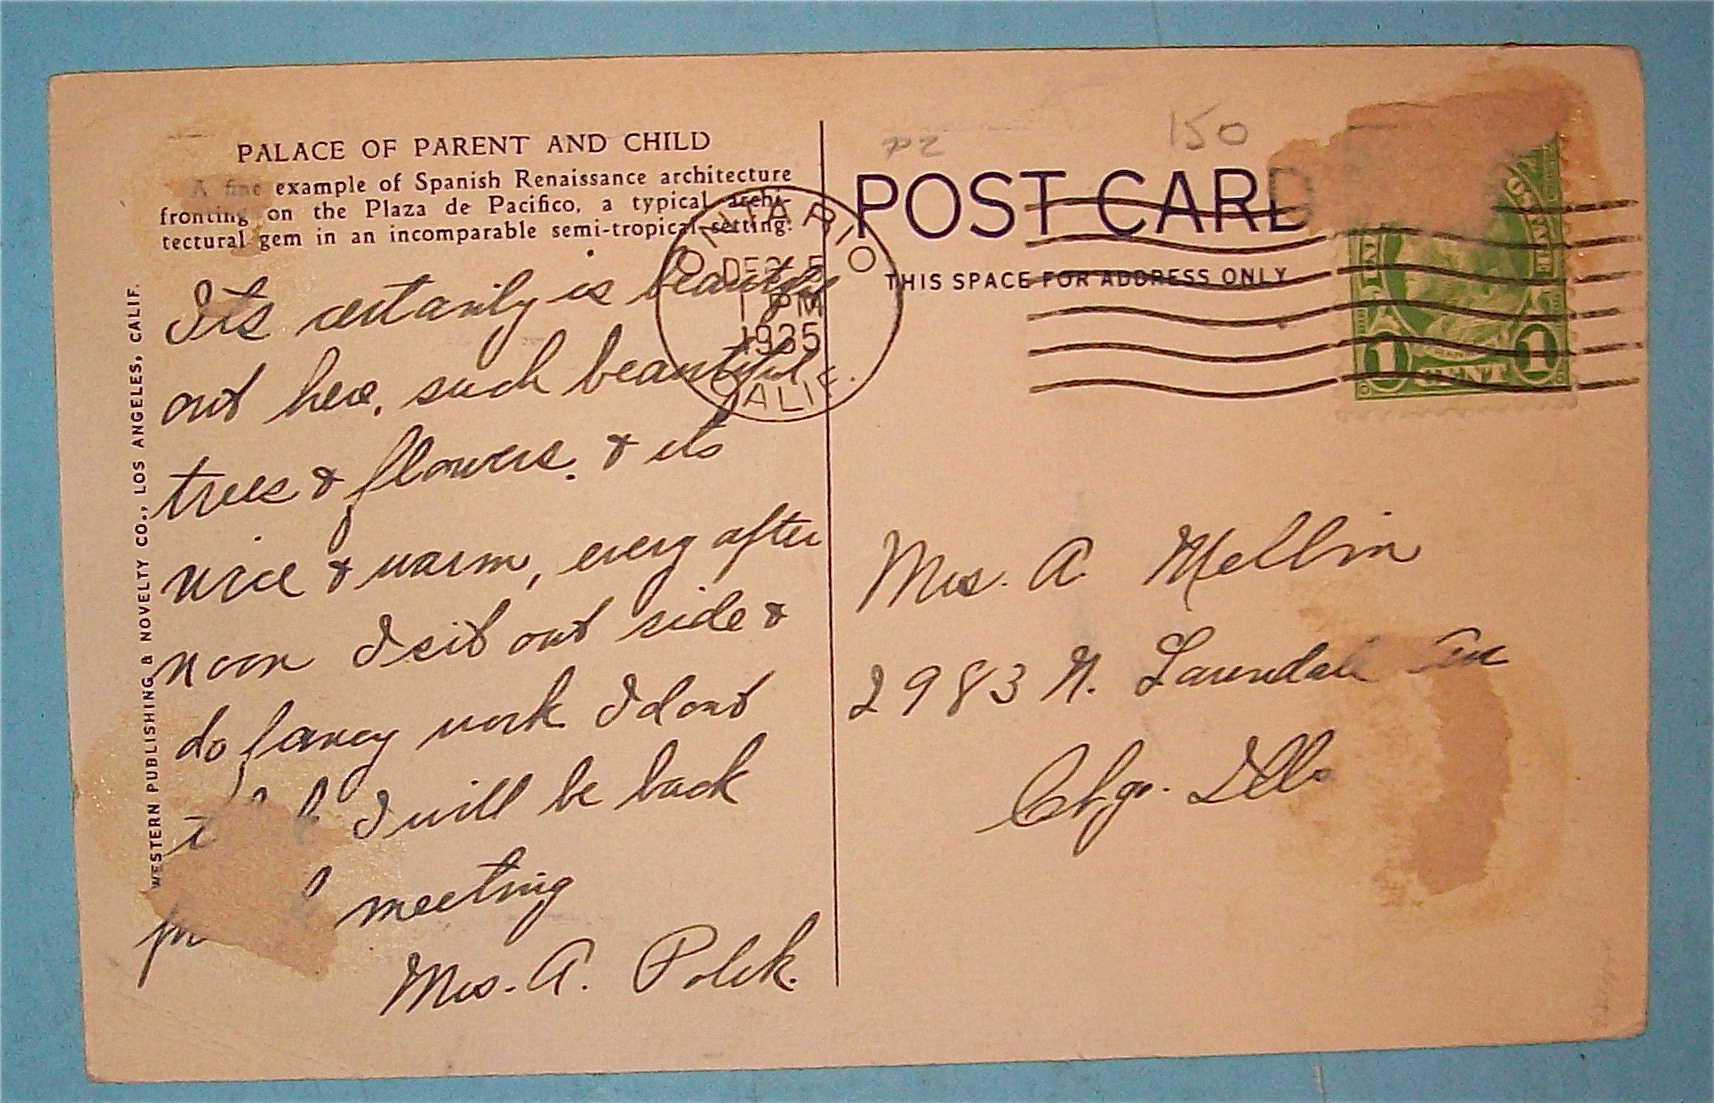 PALACE OF PARENT AND CHILD
A fine example of Spanish Renaissance architecture
fronting on the Plaza de Pacifico, a typical archi-
tectural gem in an incomparable semi-tropical setting.
Its certanily is beautify
out here, such beautiful
trees & flowers. & its
nice & warm, every after
noon I sit out side &
do fancy work I dont
I will be back
meeting
Mrs. A. Polek.
WESTERN PUBLISHING & NOVELTY CO., LOS ANGELES, CALIF.
ONTARIO
DEC 5
1 PM
1935
CALIF.
150
POST CARD
THIS SPACE FOR ADDRESS ONLY
1 CENT 1
Mrs. A Mellin
2983 N. Lawndale Ave
Chgo. Ills